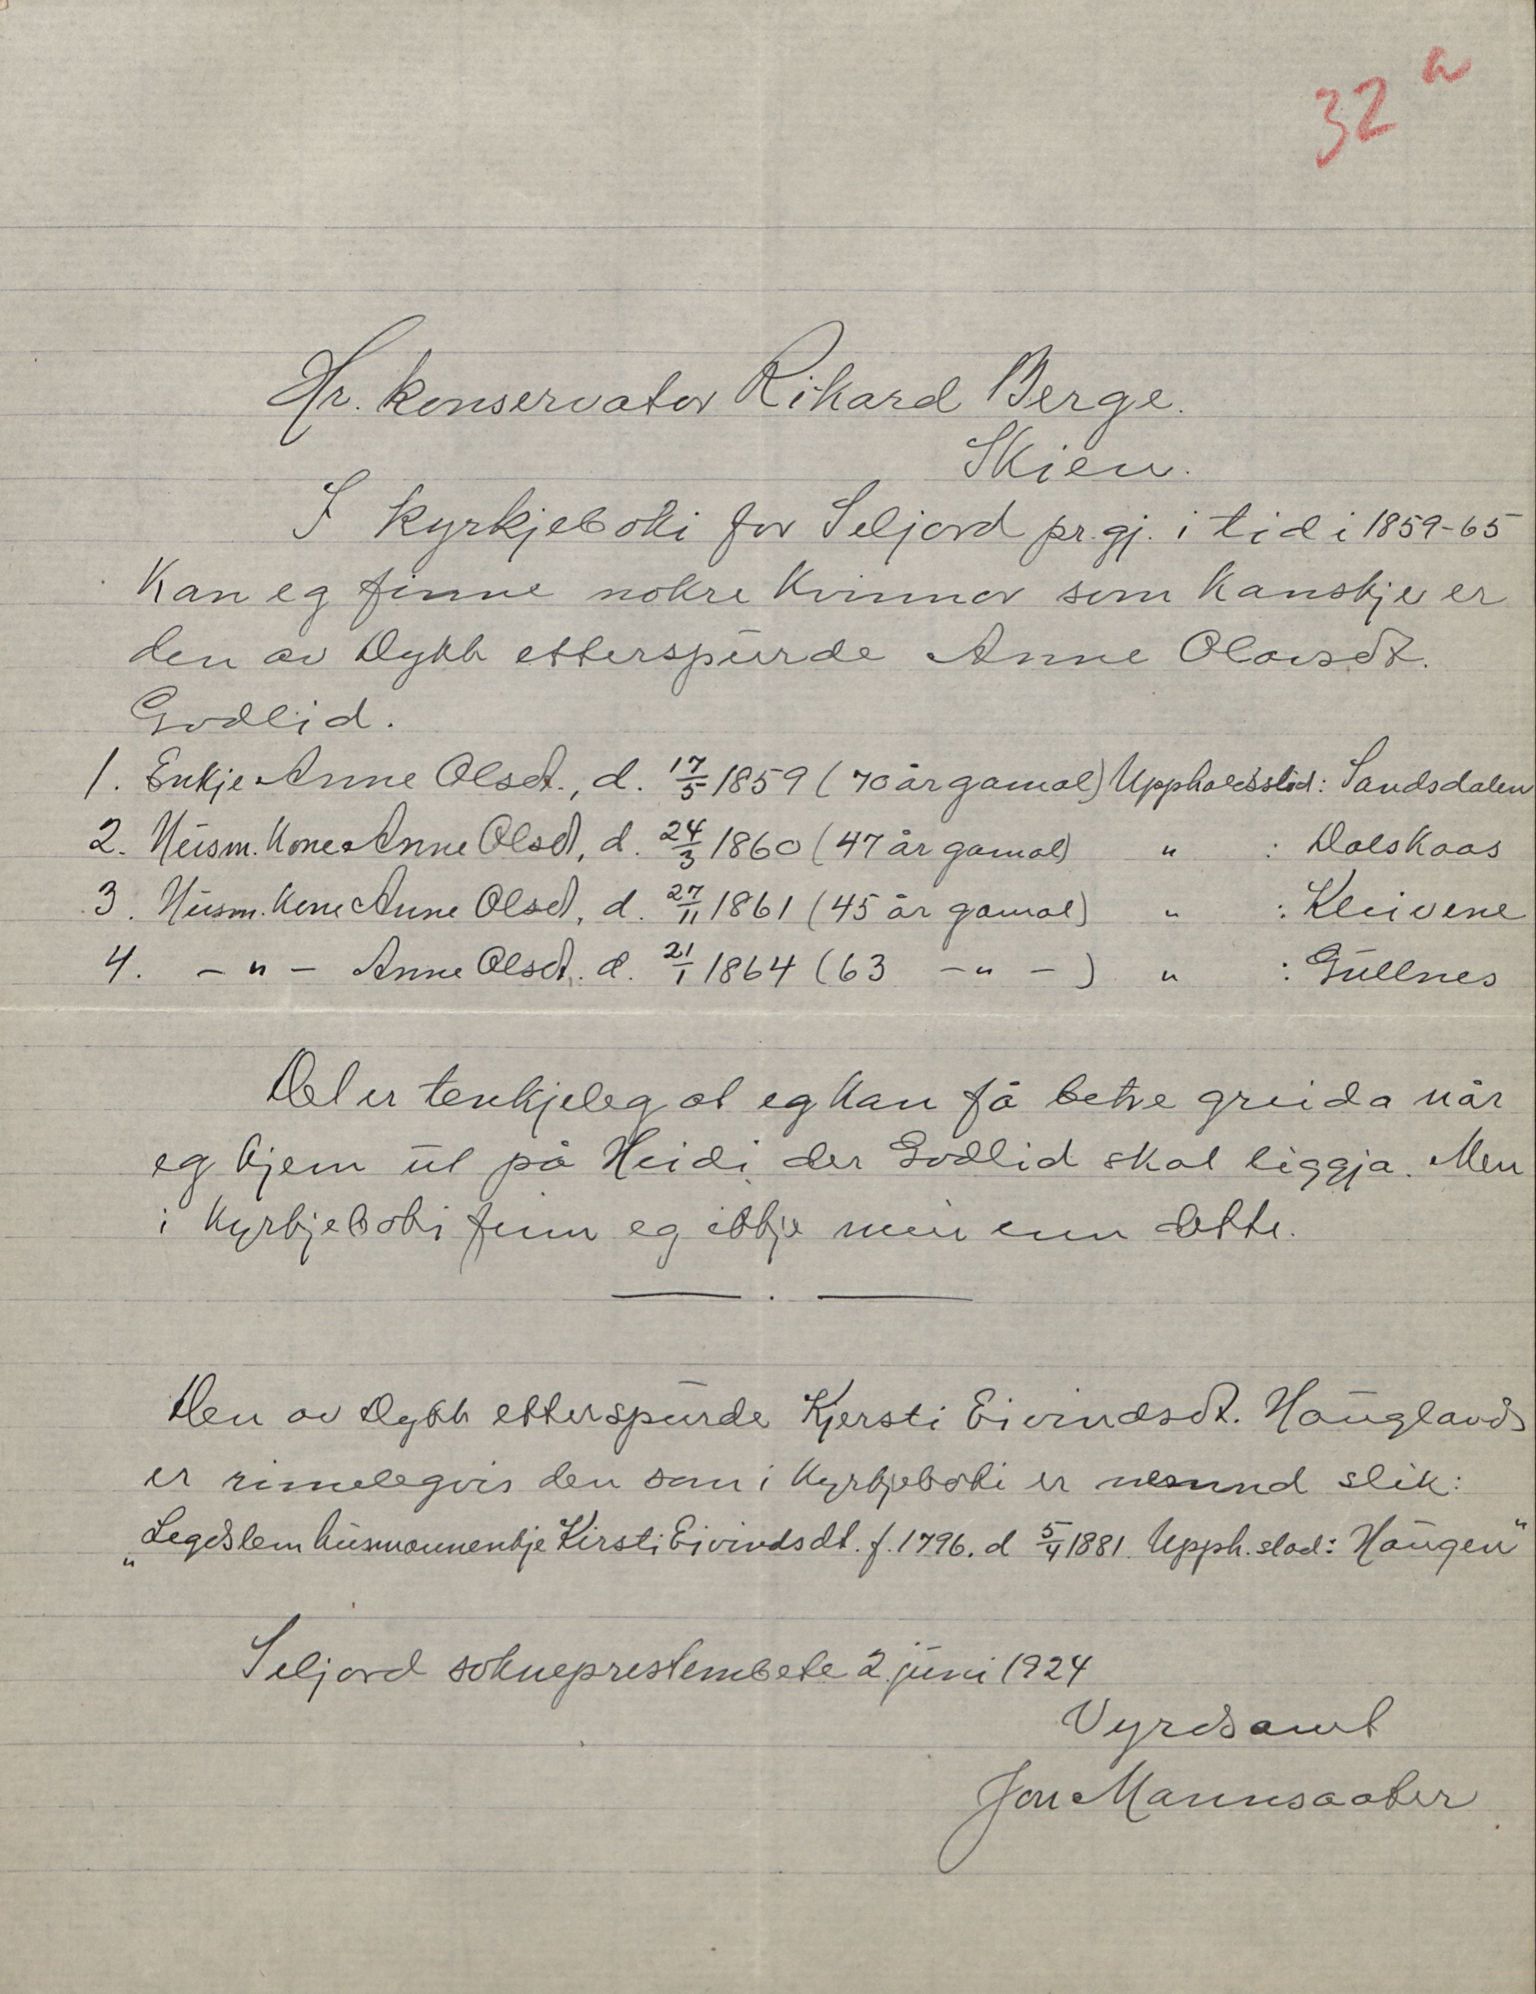 32 a
Hr. konservator Rikard Berge.
Skien.
I kyrkjeboki for Seljord pr.gj. i tid i 1859-65
kan eg finne nokre kvinnor som kanskje er
den av Dykk etterspurde Anne Olavsdt.
Godlid.
1. Enkje Anne Olsdt., d. 17/5 1859 (70 år gamal) Uppholdsstad: Sandsdalen
2. Husm. kone Anne Olsdt, d. 24/3 1860 (47 år gamal) " : Dalskaas
3. Husm. kone Anne Olsdt, d. 27/11 1861 (45 år gamal) " : Kleivene
4. - " - Anne Olsdt. d. 21/1 1864 (63 - " - ) " : Gullnes
Det er tenkjeleg at eg kan få betre greida når
eg kjem ut på Heidi der Godlid skal liggja. Men
i kyrkjeboki finn eg ikkje meir enn dette.
Den av Dykk etterspurde Kjersti Eivindsdt. Haugland
er rimelegvis den som i kyrkjeboki er nemnd slik:
"Legdslem husmannenkje Kirsti Eivindsdt. f. 1796. d 5/4 1881. Upph. stad: Haugen"
Seljord sokneprestembete 2. juni 1924
Vyrdsamt
Jon Mannsaaker